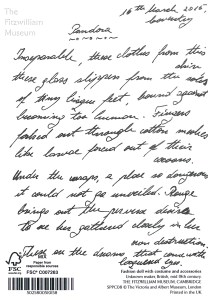 The
Fitzwilliam
Museum
16th March 2015,
Coventry
Pandora
Inseparable, these clothes from this skin
these glass slippers from the soles
of tiny bisque feet, bound against
becoming too human. Fingers
forked out through cotton
like larvae forced out of their
cocoons.
Under the wraps, a place so dangerous
it could not go unveiled. Rouge
brings out the perverse desire
to see her gutted closely in the
non
These on the dreams, that come with
eyes.
FSC
Paper from
responsible sources
FSC® C007203
Fashion doll with costume and accessories
Unknown maker, British, mid-18th century
THE FITZWILLIAM MUSEUM, CAMBRIDGE
© The Victoria and Albert Museum, London
Printed in the UK